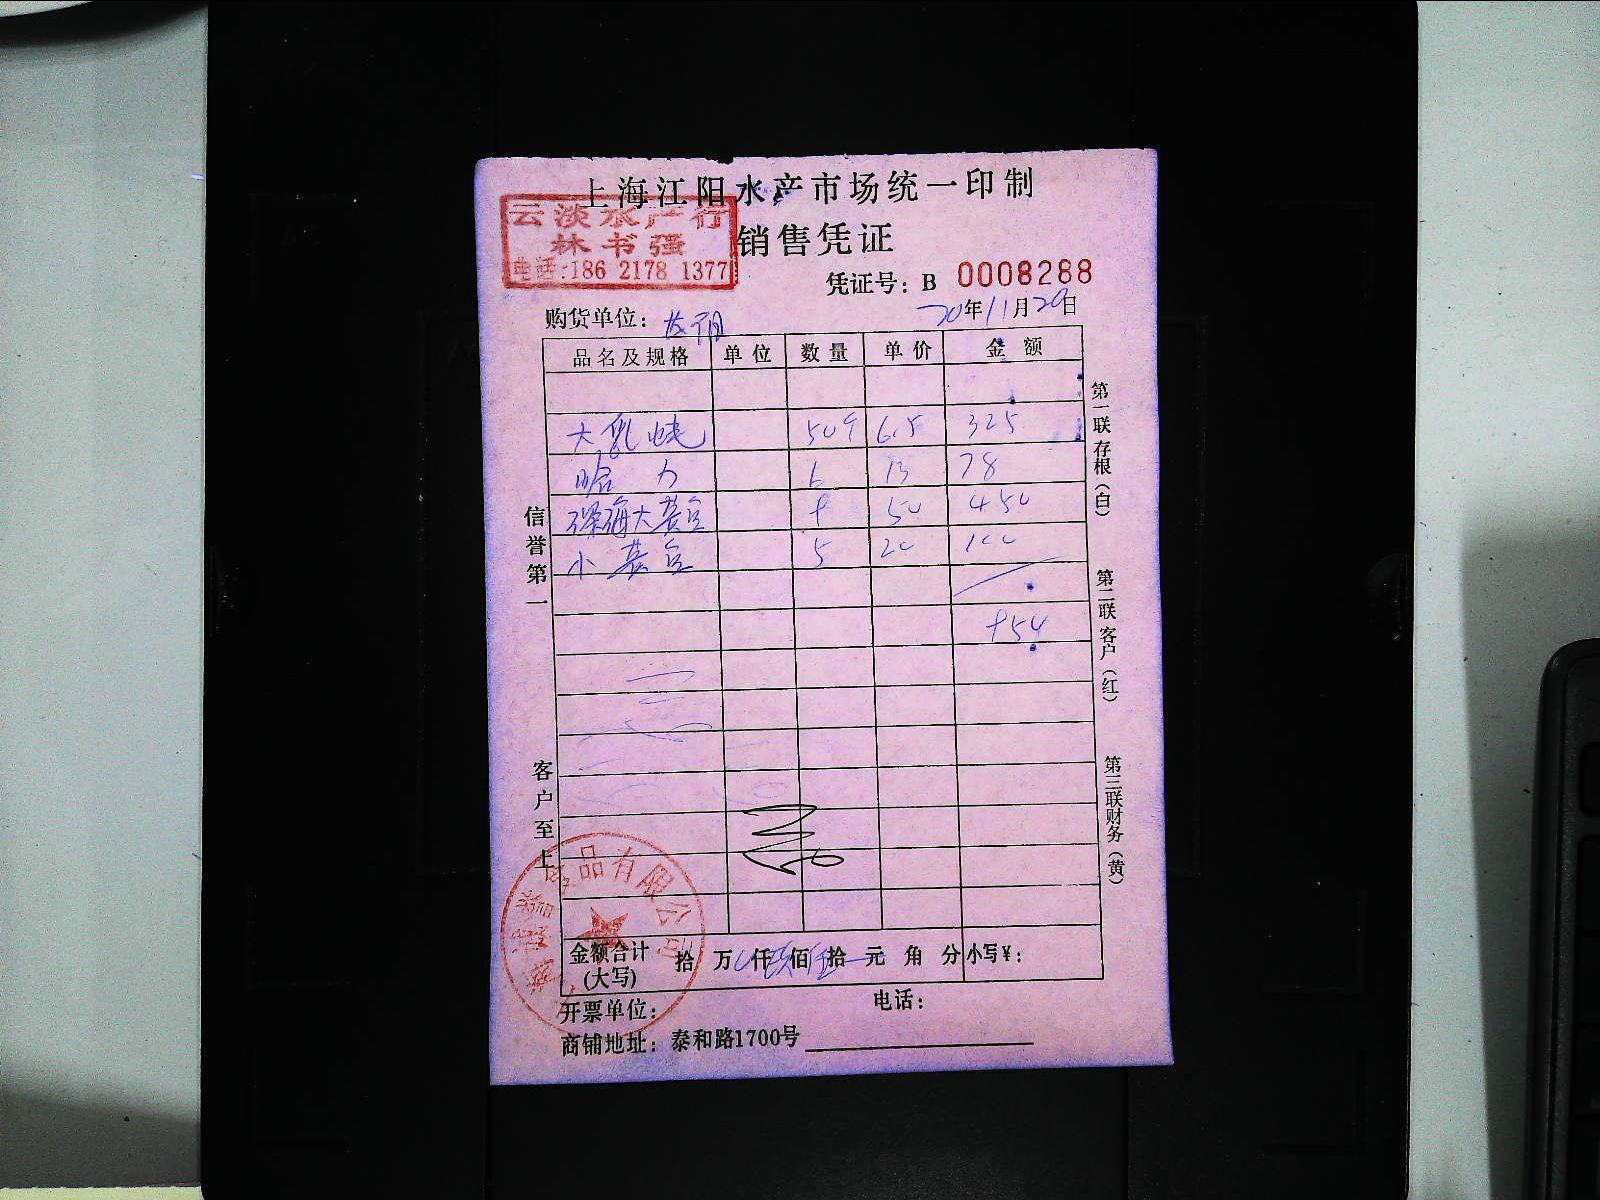 上海江阳水产市场统一印制
云淡水产行
林书强
电话:186 2178 1377
销售凭证
凭证号: B 0008288
20年11月29日
购货单位:
品名及规格 单位 数量 单价 金额
大乳 50个 6.5 325
哈 6 13 78
深海大 9 50 450
小 5 20 100
954
信誉第一
客户至上
第一联存根(白)
第二联客户(红)
第三联财务(黄)
品有限公司
金额合计(大写) 拾 万 仟 佰 拾 元 角 分 小写¥:
开票单位: 电话:
商铺地址: 泰和路1700号